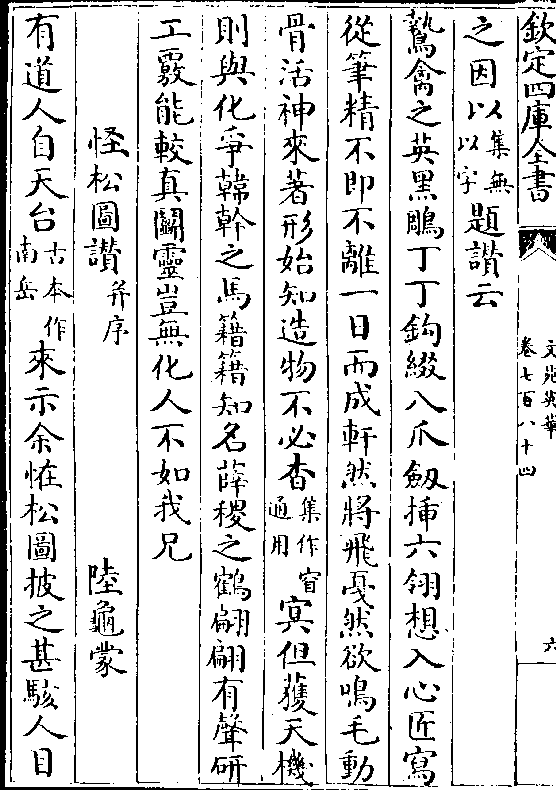 欽定四庫全書
文苑英華
卷七百八十四
六
之因以集無以字題讃云
鷙禽之英黑鵰丁丁鈎綴八爪劔揷六翎想入心匠寫
從筆精不即不離一日而成軒然將飛戞然欲鳴毛動
骨活神來著形始知造物不必杳集作窅通用㝠但獲天機
則與化爭韓幹之馬籍籍知名薛稷之鶴翩翩有聲研
工覈能較真鬬靈豈無化人不如我兄
怪松圖讃并序　陸龜蒙
有道人自天台古本作南岳來示余怪松圖披之甚駭人目